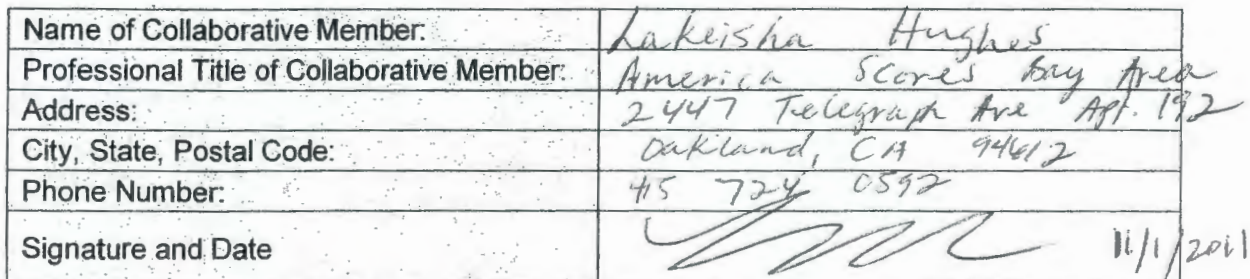 Name of Collaborative Member: Lakeisha Hughes
Professional Title of Collaborative Member: America Scores Bay Area
Address: 2447 Telegraph Ave Apt. 192
City, State, Postal Code: Oakland, CA 94612
Phone Number: 415 724 0592
Signature and Date 11/1/2011